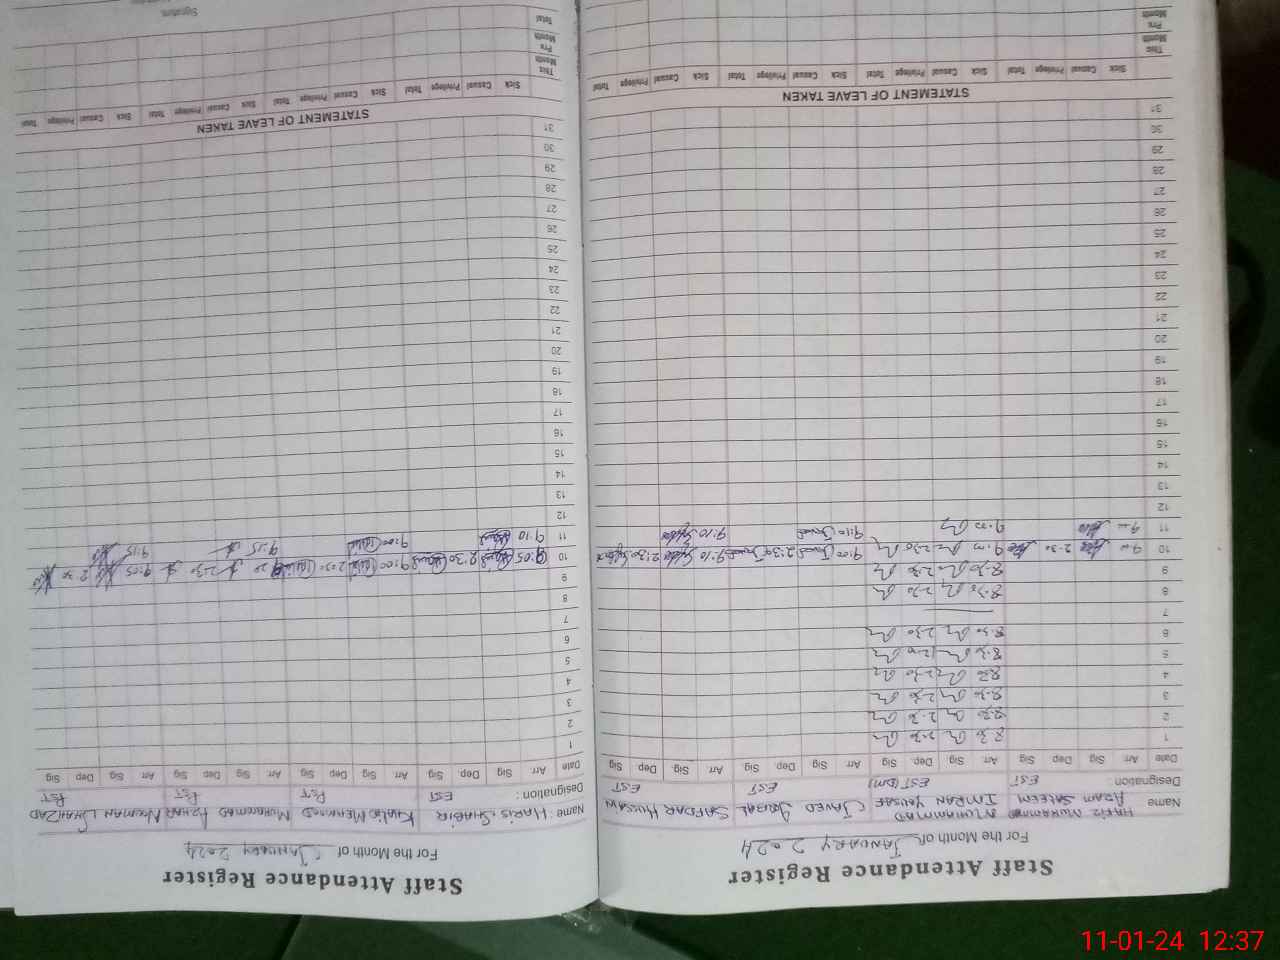 Staff Attendance Register
For the Month of JANUARY 2024
Name HAFIZ MUHAMMAD ADAM SALEEM MUHAMMAD IMRAN YOUSAF JAVED IQBAL SAFDAR HUSSAIN
Designation : EST EST (DM) EST EST
Date Arr Sig Dep Sig Arr Sig Dep Sig Arr Sig Dep Sig Arr Sig Dep Sig
1 8.30 2.30
2 8.30 2.30
3 8.30 2.30
4 8.30 2.30
5 8.30
6 8.30 2.30
7
8 8.30 2.30
9 8.30 2.30
10 2.30 2.30 9:00 2:30 9:10 2:30
11 9:10 9:10
12
13
14
15
16
17
18
19
20
21
22
23
24
25
26
27
28
29
30
31
STATEMENT OF LEAVE TAKEN
Sick Casual Privilege Total Sick Casual Privilege Total Sick Casual Privilege Total Sick Casual Privilege
This Month
Pre. Month
Staff Attendance Register
For the Month of JANUARY 2024
Name : HARIS SHABIR KHALID MEHMOOD MUHAMMAD AZHAR NOUMAN SHAHZAD
Designation : EST PST PST PST
Date Arr Sig Dep Sig Arr Sig Dep Sig Arr Sig Dep Sig Arr Sig Dep Sig
1
2
3
4
5
6
7
8
9
10 9:05 2:30 9:00 2:30 2:30 9:05 2:30
11 9:10 9:00 9:15 9:15
12
13
14
15
16
17
18
19
20
21
22
23
24
25
26
27
28
29
30
31
STATEMENT OF LEAVE TAKEN
Sick Casual Privilege Total Sick Casual Privilege Total Sick Casual Privilege Total Sick Casual Privilege Total
This Month
Pre. Month
Total
Signature
11-01-24 12:37